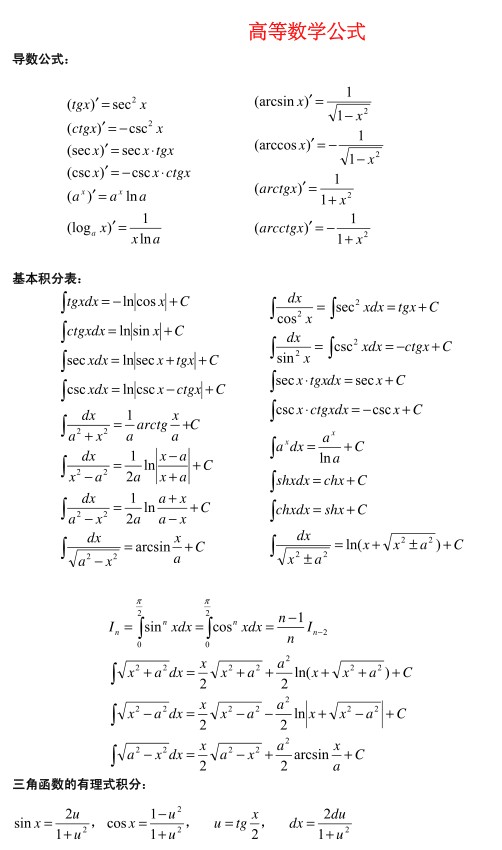 高等数学公式
导数公式：
(tgx)′ = sec² x
(ctgx)′ = −csc² x
(sec x)′ = sec x · tgx
(csc x)′ = −csc x · ctgx
(aˣ)′ = aˣ ln a
(logₐ x)′ = 1/(x ln a)
(arcsin x)′ = 1/√(1−x²)
(arccos x)′ = −1/√(1−x²)
(arctgx)′ = 1/(1+x²)
(arcctgx)′ = −1/(1+x²)
基本积分表：
∫tgxdx = −ln|cos x| + C
∫ctgxdx = ln|sin x| + C
∫sec xdx = ln|sec x + tgx| + C
∫csc xdx = ln|csc x − ctgx| + C
∫dx/(a²+x²) = (1/a) arctg (x/a) + C
∫dx/(x²−a²) = (1/2a) ln|(x−a)/(x+a)| + C
∫dx/(a²−x²) = (1/2a) ln (a+x)/(a−x) + C
∫dx/√(a²−x²) = arcsin (x/a) + C
∫dx/cos² x = ∫sec² xdx = tgx + C
∫dx/sin² x = ∫csc² xdx = −ctgx + C
∫sec x · tgxdx = sec x + C
∫csc x · ctgxdx = −csc x + C
∫aˣdx = aˣ/ln a + C
∫shxdx = chx + C
∫chxdx = shx + C
∫dx/√(x²±a²) = ln(x + √(x²±a²)) + C
Iₙ = ∫₀^(π/2) sinⁿ xdx = ∫₀^(π/2) cosⁿ xdx = (n−1)/n Iₙ₋₂
∫√(x²+a²)dx = (x/2)√(x²+a²) + (a²/2) ln(x + √(x²+a²)) + C
∫√(x²−a²)dx = (x/2)√(x²−a²) − (a²/2) ln|x + √(x²−a²)| + C
∫√(a²−x²)dx = (x/2)√(a²−x²) + (a²/2) arcsin (x/a) + C
三角函数的有理式积分：
sin x = 2u/(1+u²)， cos x = (1−u²)/(1+u²)， u = tg (x/2)， dx = 2du/(1+u²)